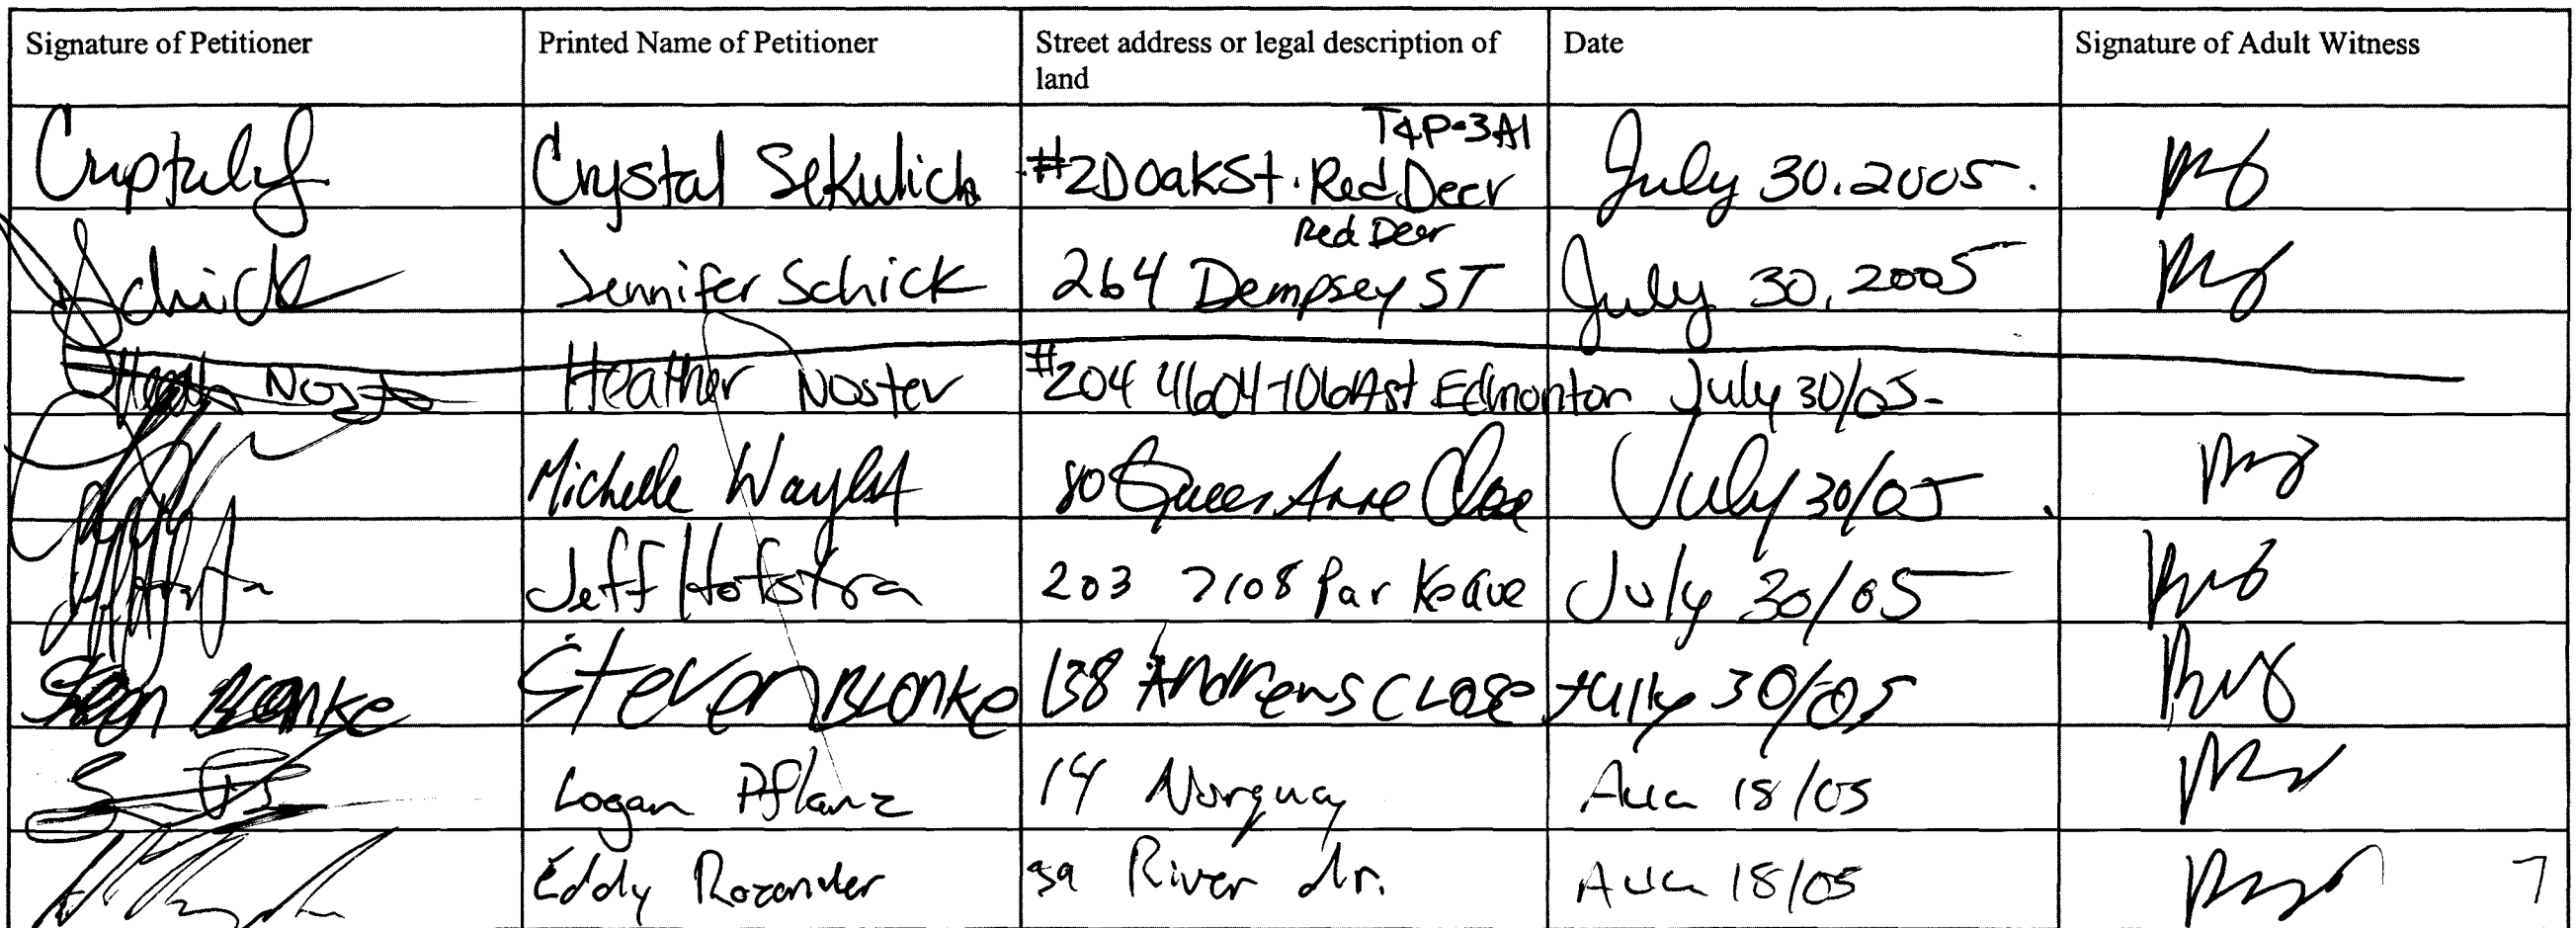 Signature of Petitioner
Printed Name of Petitioner
Street address or legal description of
land
Date
Signature of Adult Witness
Crystal Sekulich
T4P-3A1
#2D Oak St. Red Deer
July 30.2005.
Schick
Jennifer Schick
Red Deer
264 Dempsey ST
July 30, 2005
Noster
Heather Noster
#204 4604-106A st Edmonton
July 30/05-
Michelle
80 Queen Anne Close
July 30/05
Jeff Hofstra
203 7108 Parkeave
July 30/05
Blonke
Steven BLonke
138 Andrews CLose
July 30/05
Logan Pflanz
14 Norquay
Aug 18/05
Eddy Rozander
River dr.
Aug 18/05
7